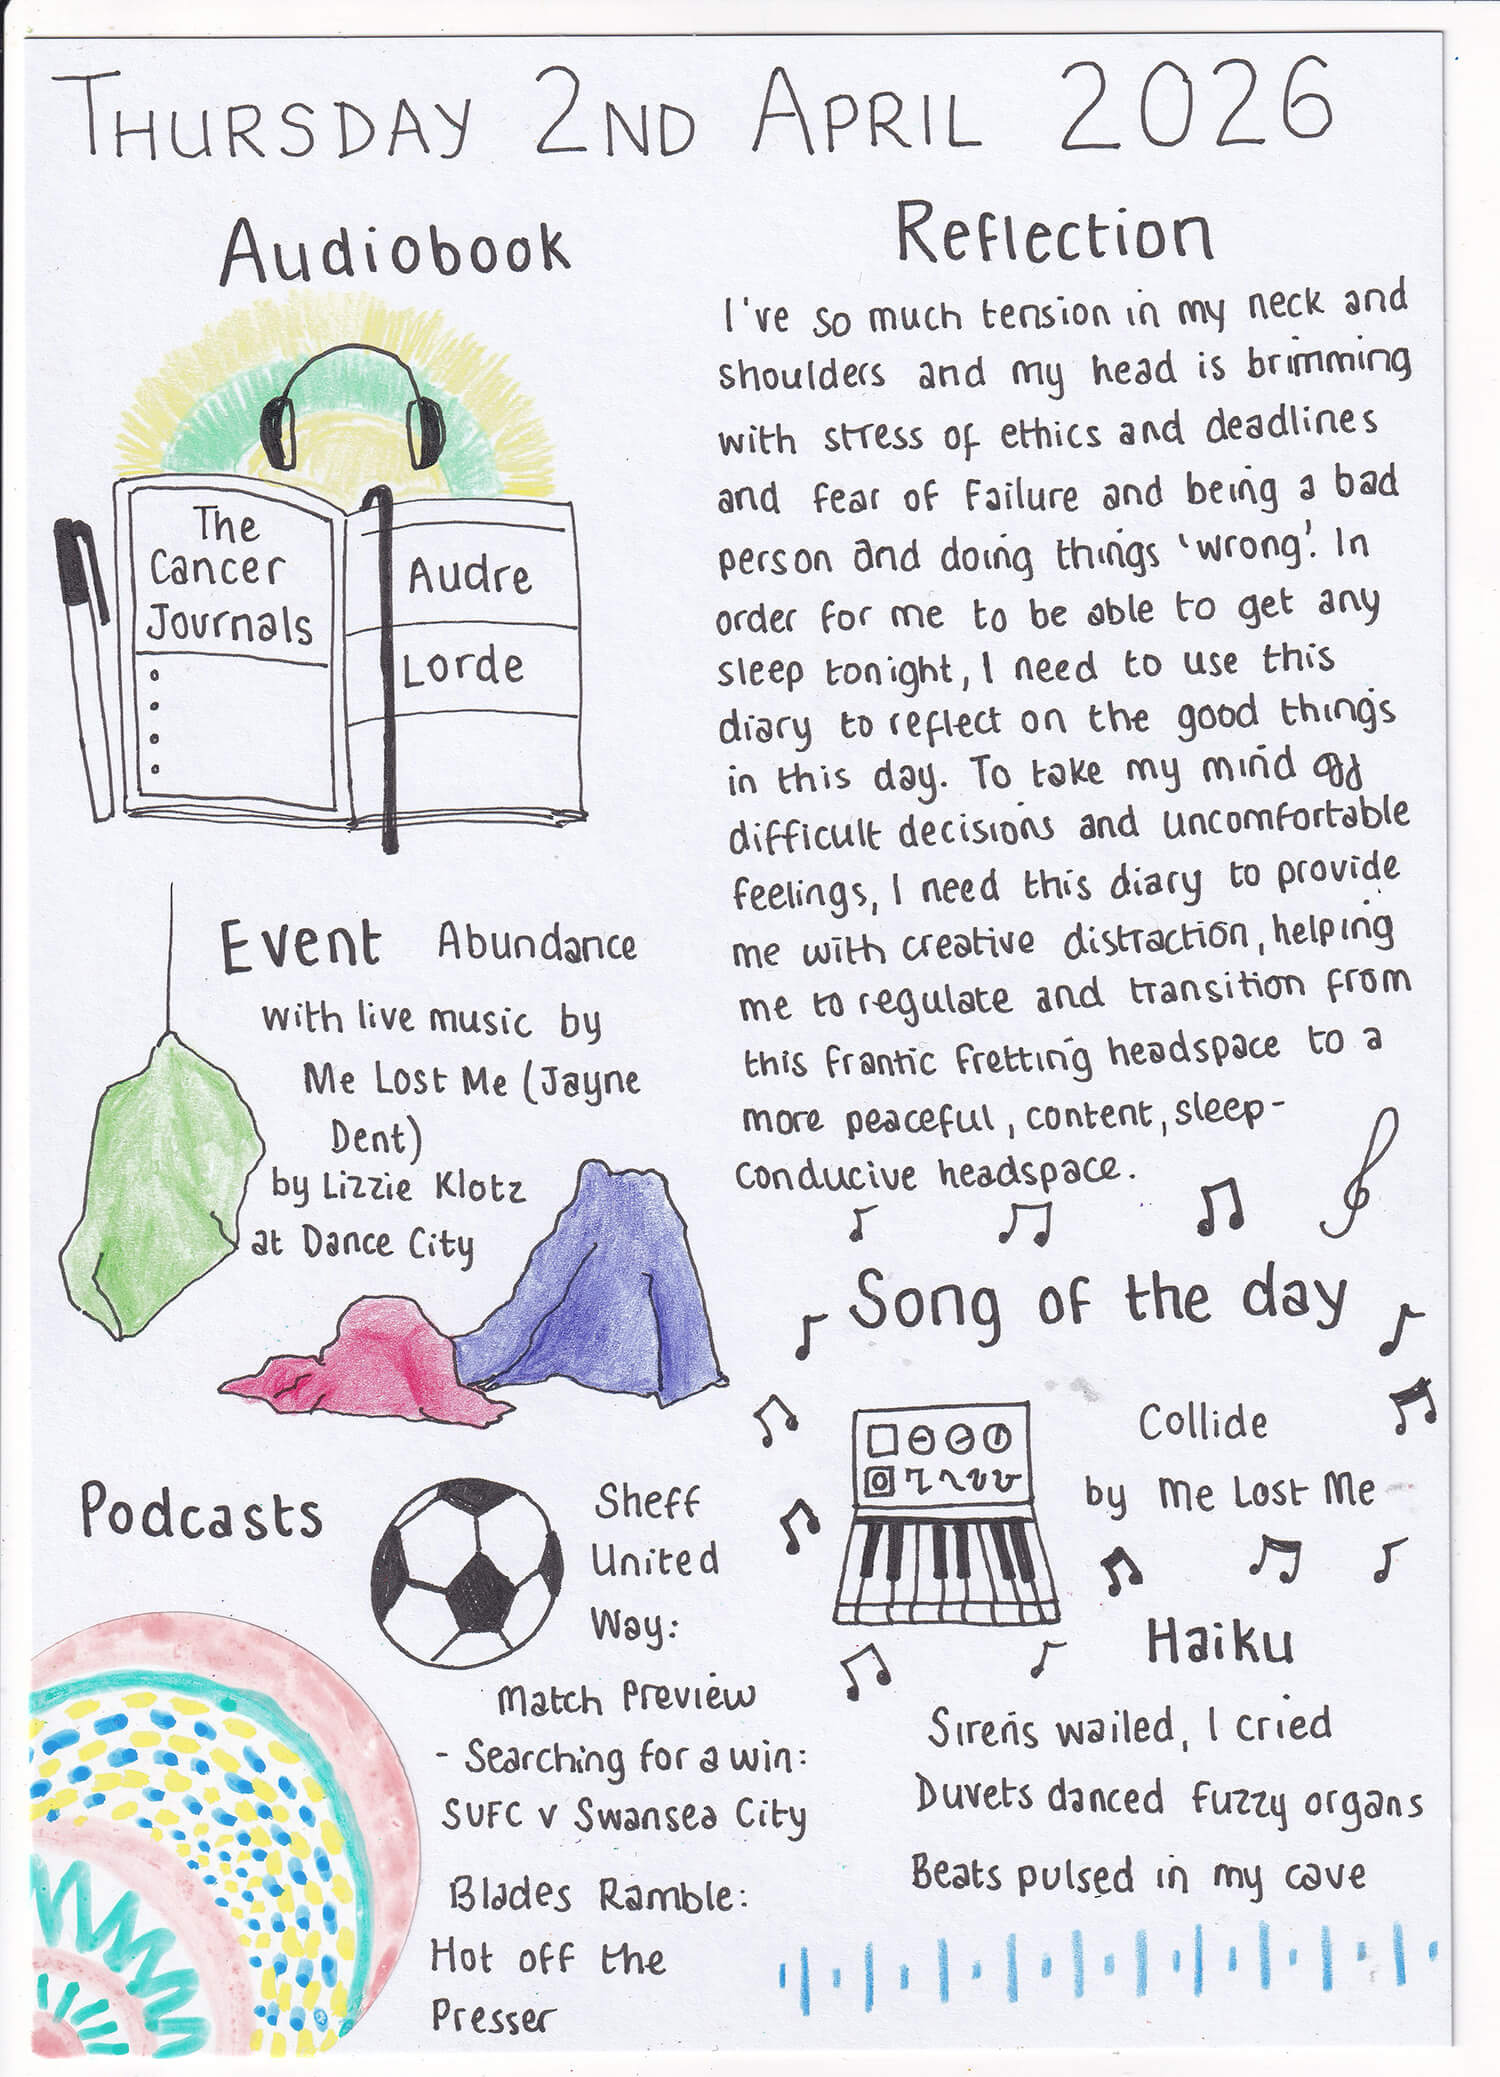 THURSDAY 2ND APRIL 2026
Audiobook
The
Cancer
Journals
Audre
Lorde
Event Abundance
with live music by
Me Lost Me (Jayne
Dent)
by Lizzie Klotz
at Dance City
Podcasts
Sheff
United
Way:
Match Preview
- Searching for a win:
SUFC v Swansea City
Blades Ramble:
Hot off the
Presser
Reflection
I've so much tension in my neck and
shoulders and my head is brimming
with stress of ethics and deadlines
and fear of failure and being a bad
person and doing things 'wrong'. In
order for me to be able to get any
sleep tonight, I need to use this
diary to reflect on the good things
in this day. To take my mind off
difficult decisions and uncomfortable
feelings, I need this diary to provide
me with creative distraction, helping
me to regulate and transition from
this frantic fretting headspace to a
more peaceful, content, sleep-
conducive headspace.
Song of the day
Collide
by Me Lost Me
Haiku
Sirens wailed, I cried
Duvets danced fuzzy organs
Beats pulsed in my cave